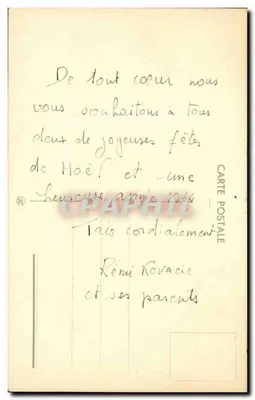 De tout cœur nous
vous souhaitons à tous
deux de joyeuses fêtes
de Noël et une
heureuse année
Très cordialement
Rémi Kovacic
et ses parents
CARTE POSTALE
CPAPHIL